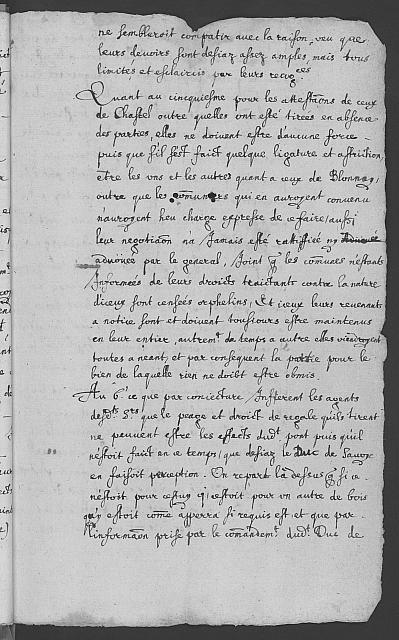 ne sembleroit compatir avec la raison, veu que
leurs devoirs sont desiaz assez amples, mais tous
limités et esclaircis par leurs recog.ces
Quant au cincquiesme pour les attestãons de ceux
de Chastel outre quelles ont esté tirées en absence
des parties, elles ne doivent estre d'aucune force
puis que s'il s'est faict quelque ligature et astriction,
entre les uns et les autres quant a ceux de Blonnay,
outre que les comuniers qui en auroyent convenu
nauroyent heu charge expresse de ce faire, aussi
leur negotiaõn na Jamais esté rattiffiée ny
advouée par le general, Joint q les comunes n'estants
Informées de leurs droicts traictants contre la nature
d'iceux sont censées orphelins, Et iceux leurs revenants
a notice sont et doivent tousiours estre maintenus
en leur entier, autrem.t de temps a autre elles viendroyent
toutes a neant, et par consequent la partie pour le
bien de laquelle rien ne doibt estre obmis.
Au 6.e ce que par coniecture Infferent les agents
desd.ts S.rs que le peage et droict de regale qu'ils tirent
ne peuvent estre les effects dud.t pont puis qu'il
n'estoit faict en ce temps, que desiaz le Duc de Savoye
en faisoit perception. On repart la dessus q si ce
n'estoit pour cestuy cy c'estoit pour un autre de bois
qu'y estoit come apperra si requis est et que par
l'informaõn prise par le comandem.t dud.t Duc de